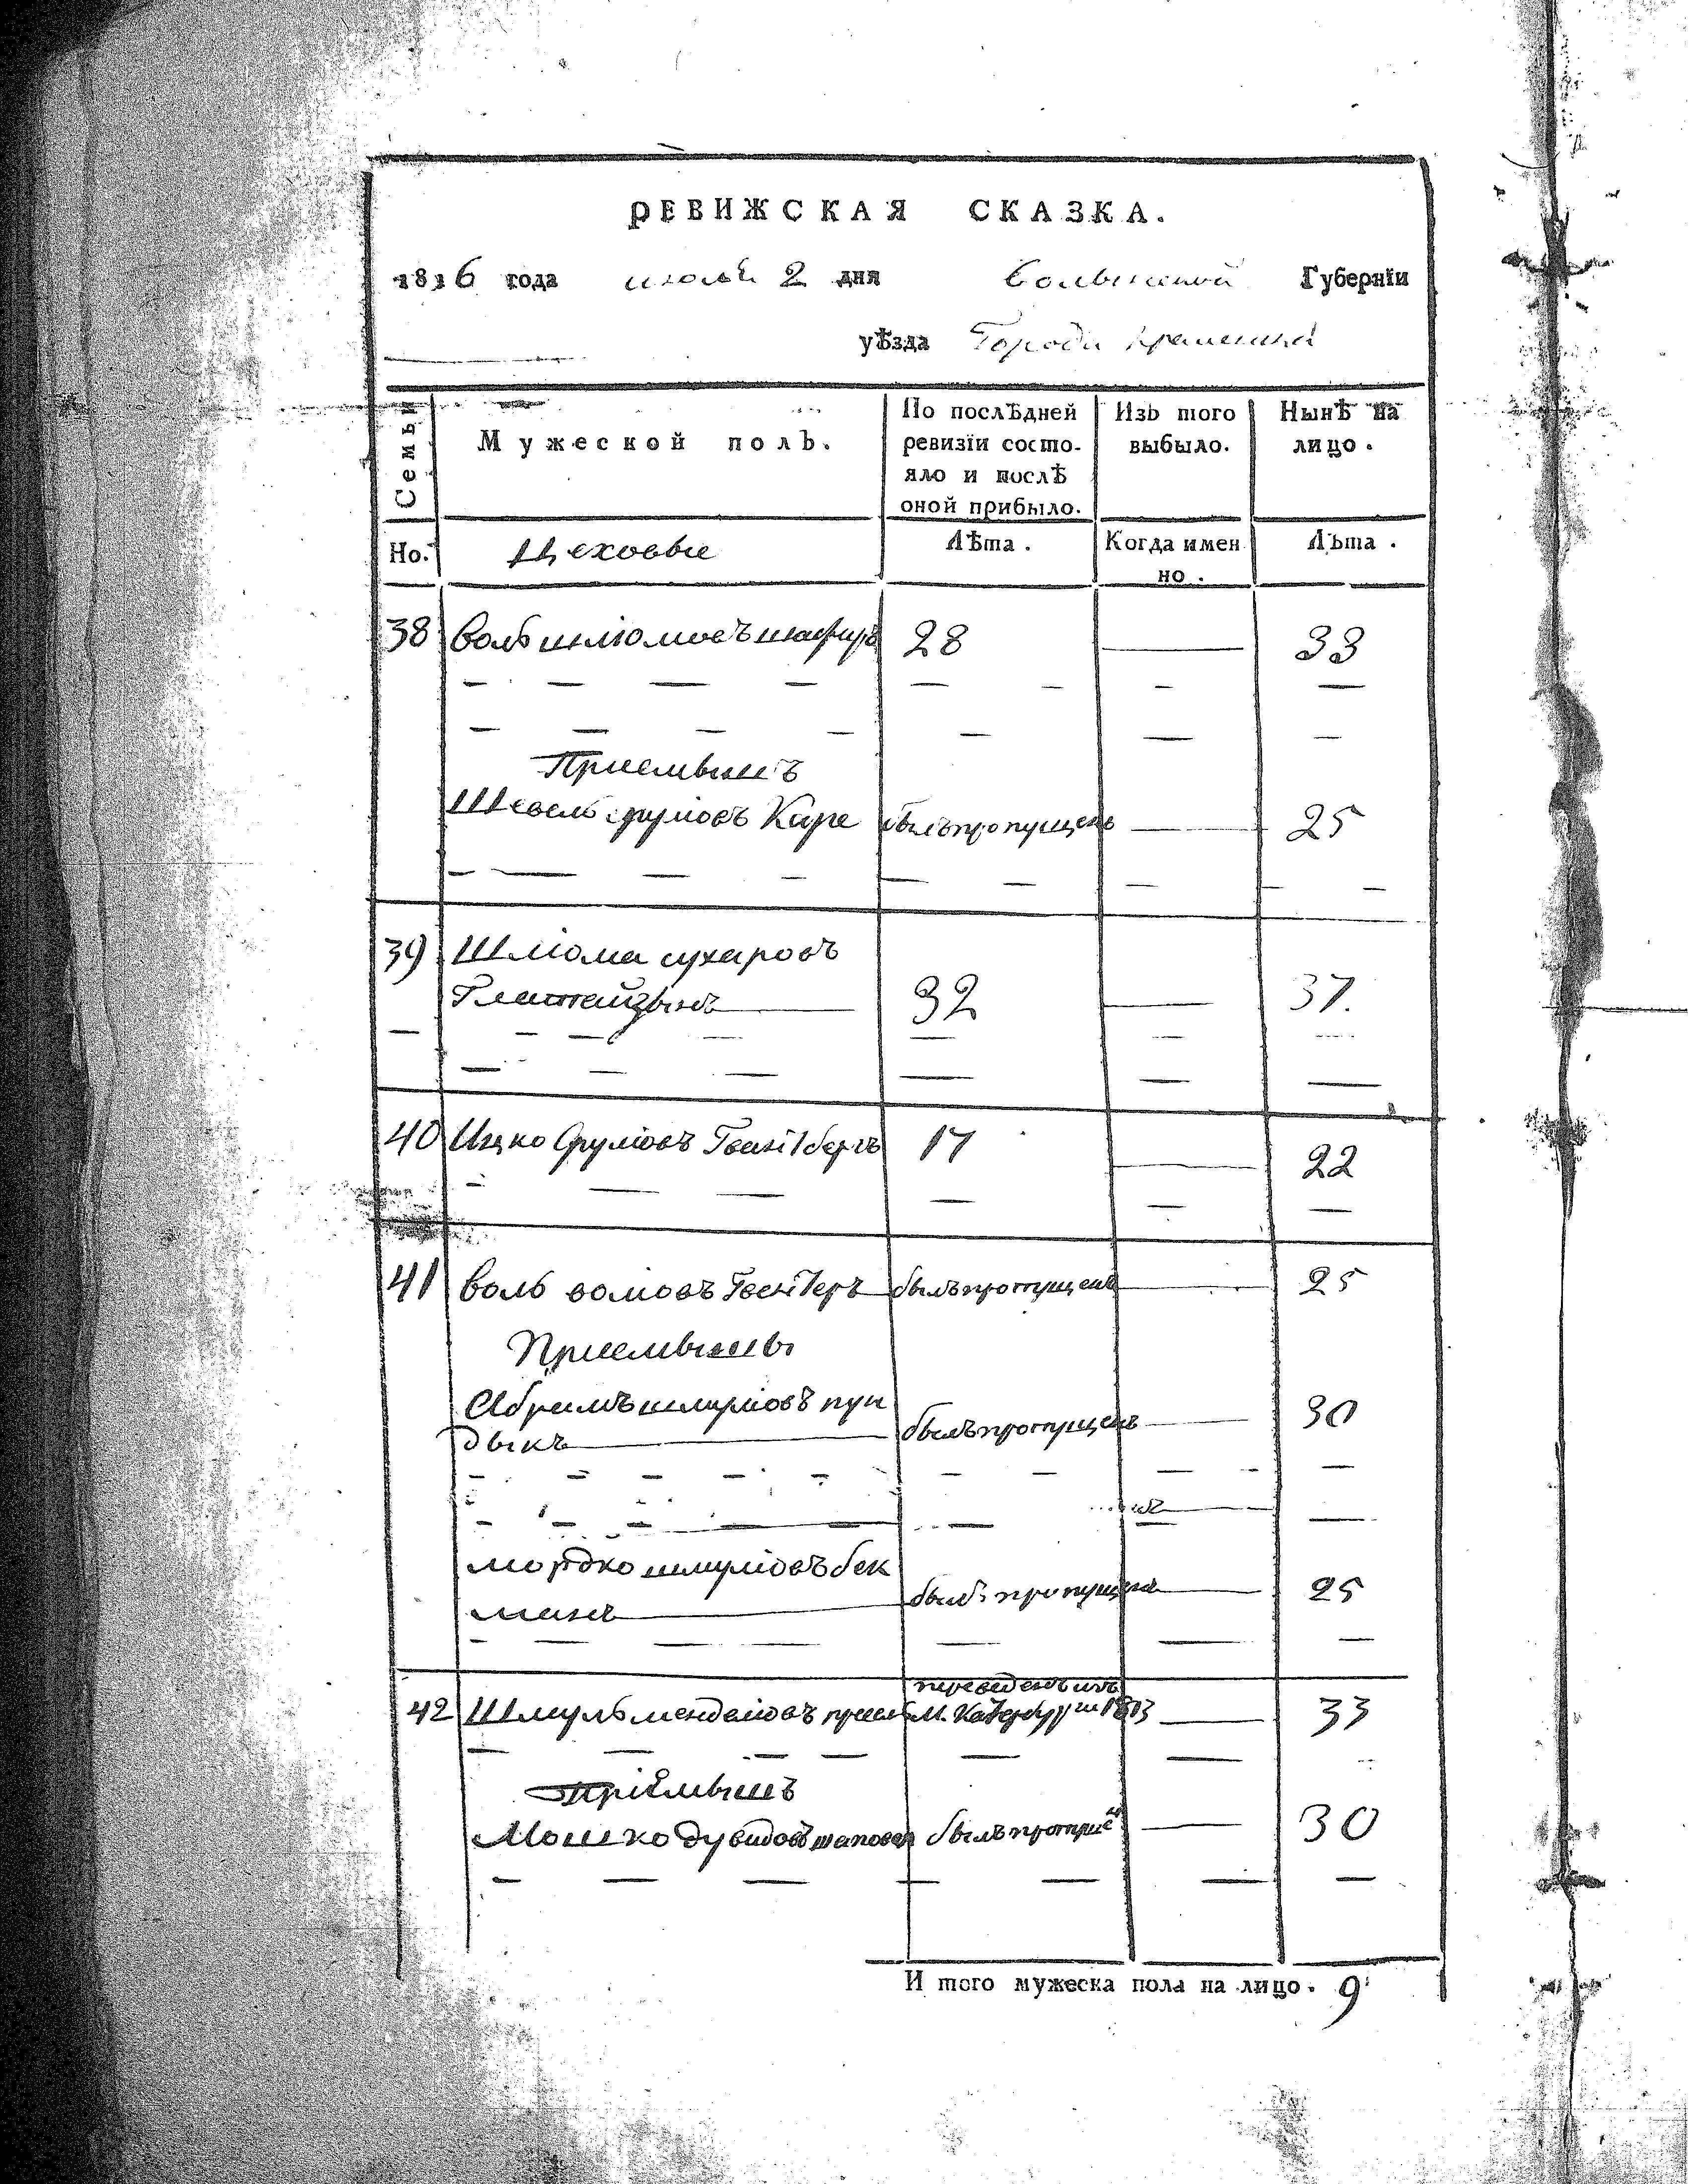 РЕВИЖСКАЯ СКАЗКА.
1816 года июля 2 дня Волынской Губернїи
уѣзда Города Кременца
Семьи
Мужеской полъ.
По послѣдней ревизїи состояло и послѣ оной прибыло.
Изъ того выбыло.
Нынѣ на лицо.
Но.
Цеховые
Лѣта.
Когда именно.
Лѣта.
38 Воль шлюмовъ 28 33
Приемышъ
Шевель срулiовъ Каре былъ пропущенъ 25
39 Шлiома сухаровъ
32 37.
40 Ицко Срулiовъ 17 22
41 Воль волiовъ былъ пропущенъ 25
Приемыши
Абрамъ шмулiовъ пун
дыкъ былъ пропущенъ 30
мордко шмулiовъ бек
манъ былъ пропущенъ 25
переведенъ изъ
42 Шмуль менделiовъ М. 1813 33
Прiемышъ
Мошко дувидовъ шаповал былъ пропуще 30
И того мужеска пола на лицо. 9